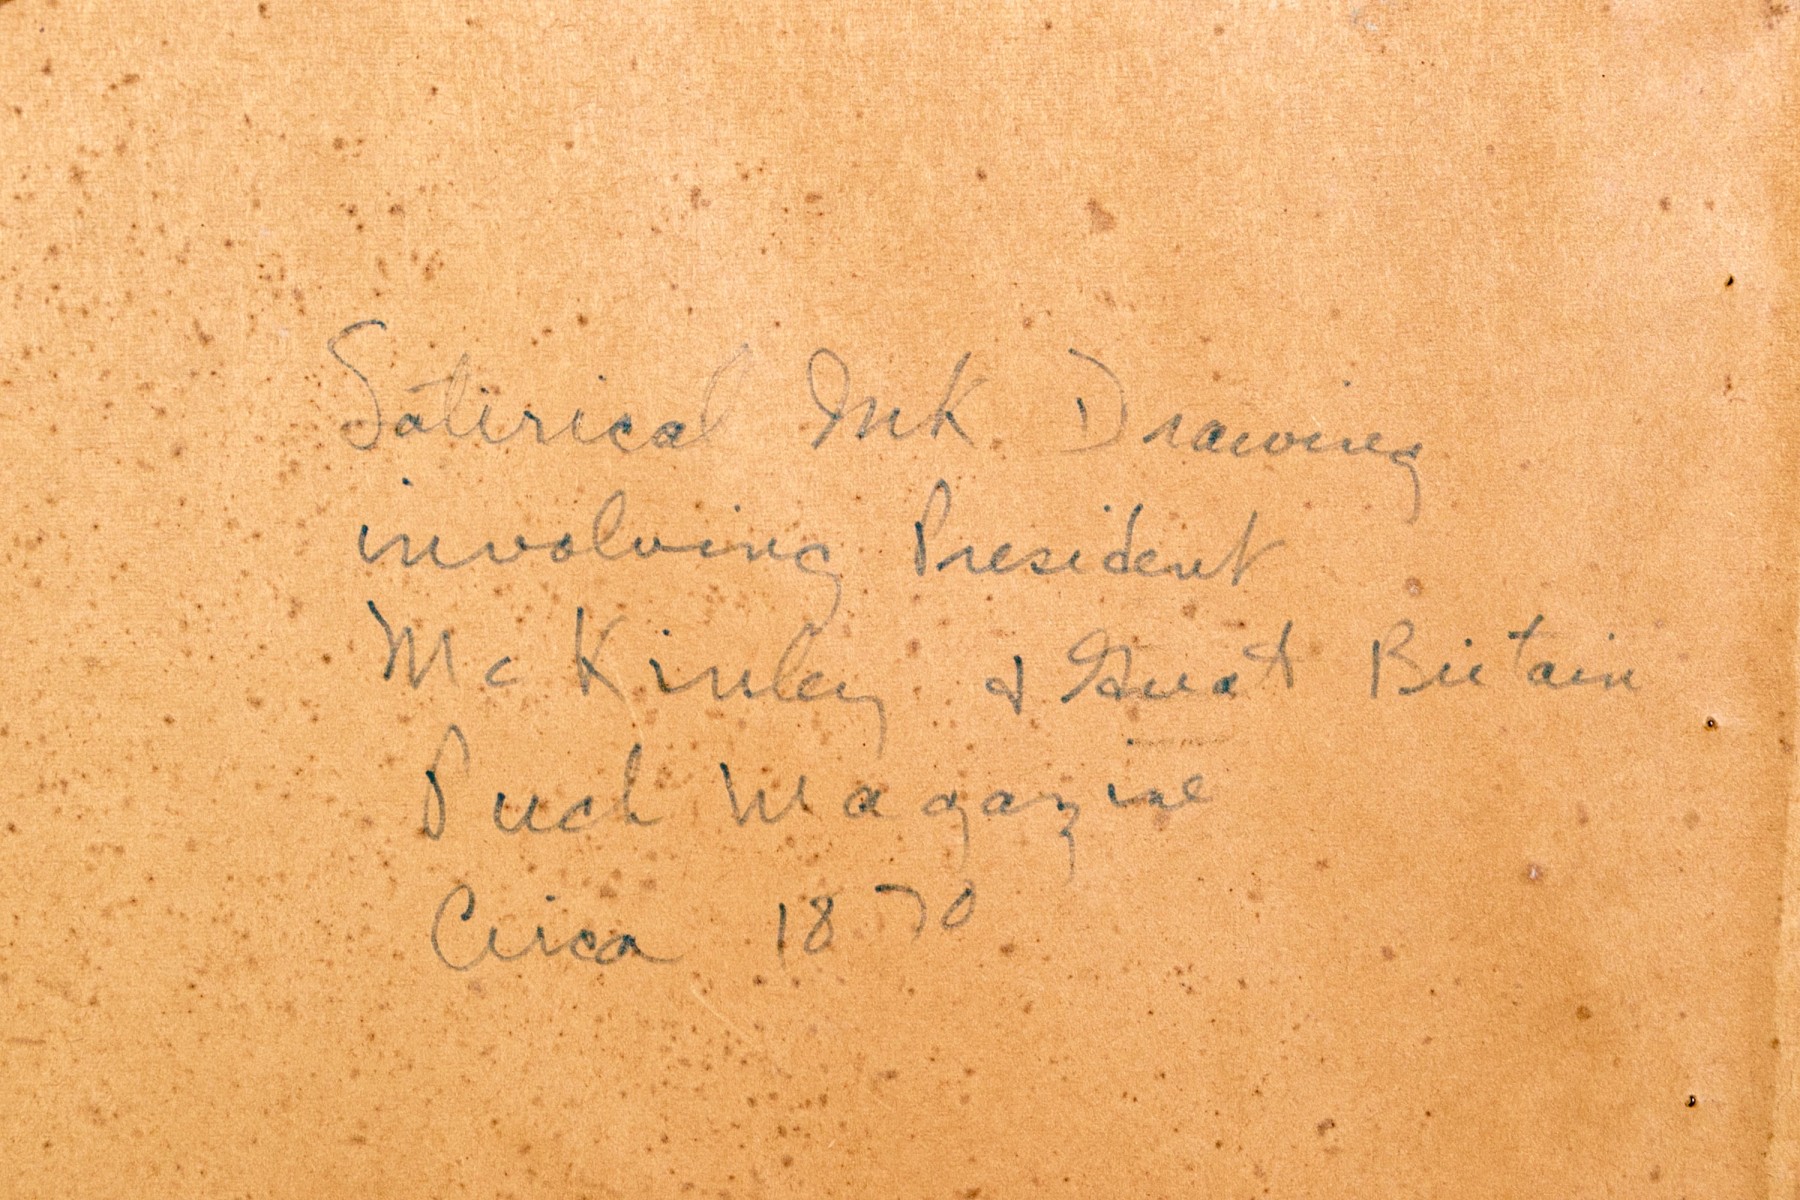 Satirical Ink Drawing
involving President
McKinley & Great Britain
Puch Magazine
Circa 1870